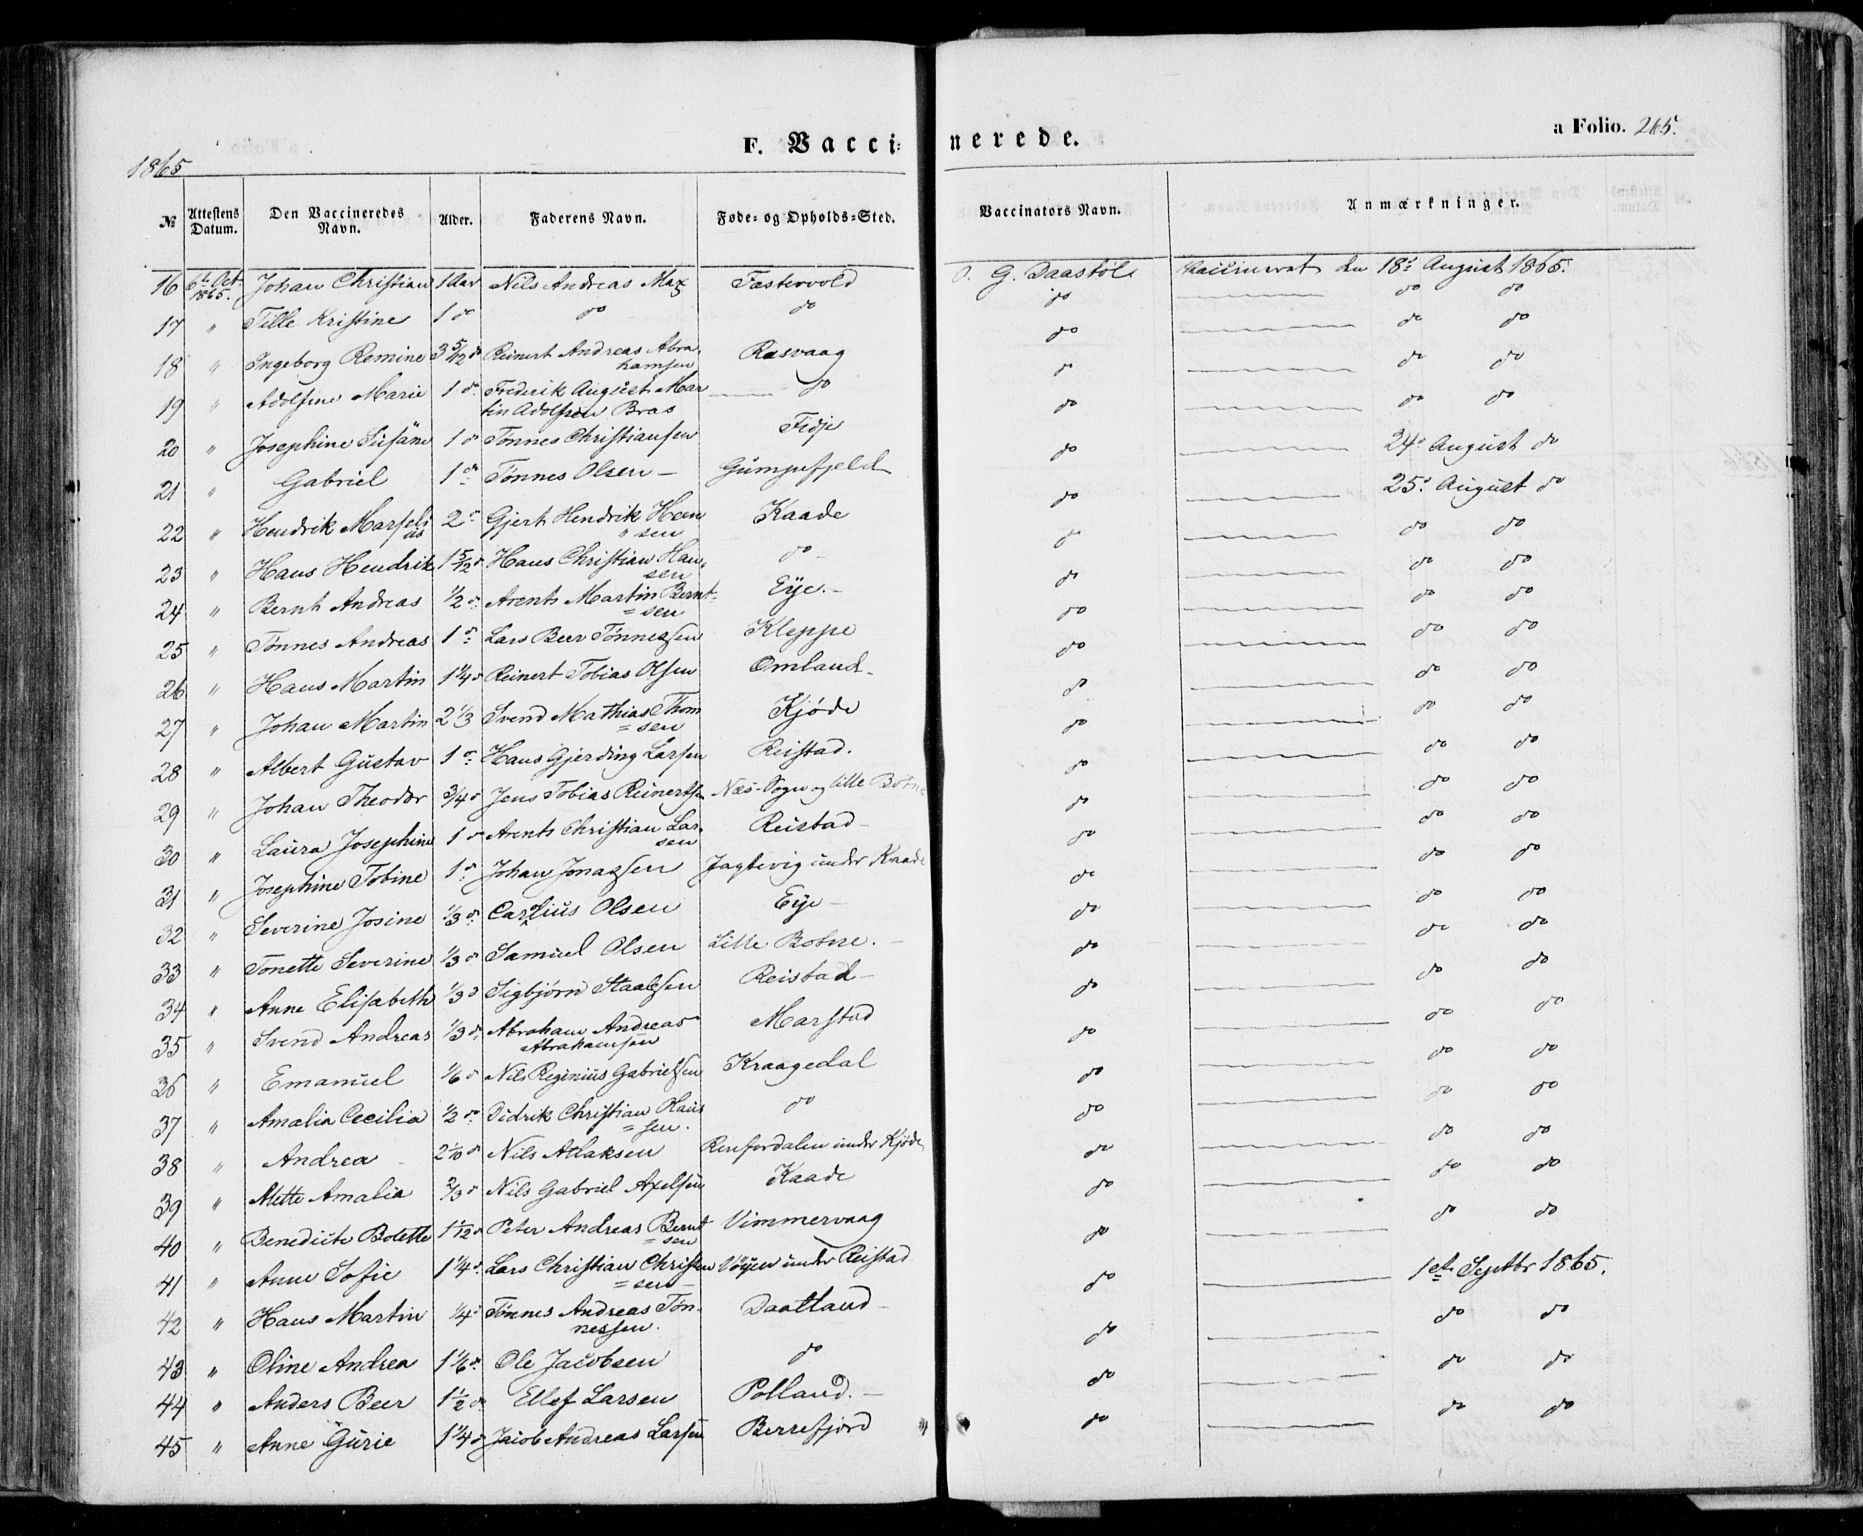 a Folio. 265.
F. Vaccinerede.
1865
№ Attestens Datum. Den Vaccineredes Navn. Alder. Faderens Navn. Føde- og Opholds-Sted. Vaccinators Navn. Anmærkninger.
16 6te Oct. 1865. Johan Christian 1 Aar Nils Andreas Max Tæstervold O. G. Daastøl Vaccineret den 18de August 1865.
17 " Tille Kristine 1 do do do do do do
18 " Ingeborg Remine 3 5/12 do Reinert Andreas Abrahamsen Rasvaag do do do
19 " Adolfine Marie 1 do Frederik August Martin Adolfsen Bras do do do do
20 " Josephine Susane 1 do Tønnes Christiansen Fidje do do do
21 " Gabriel 1 do Tønnes Olsen Gumpefjeld do 24de August do
22 " Hendrik Marselius 2 do Gjert Hendrik Hansen Kaade do 25de August do
23 " Hans Hendrik 1 5/12 do Hans Christian Hansen do do do do
24 " Bernt Andreas 1/2 do Arent Martin Berntsen Eye. do do do
25 " Tønnes Andreas 1 do Lars Beer Tønnessen Kleppe do do do
26 " Hans Martin 1 1/4 do Reinert Tobias Olsen Omland do do do
27 " Johan Martin 2 1/3 Svend Mathias Thomsen Kjøde do do do
28 " Albert Gustav 1 do Hans Gjerding Larsen Reistad. do do do
29 " Johan Theodor 3/4 do Jens Tobias Reinertsen Næs-Sogn og lille Botne do do do
30 " Laura Josephine 1 do Arent Christian Larsen Reistad do do do
31 " Josephine Tobine 1 do Johan Jonassen Jagtevig under Kaade do do do
32 " Severine Josine 1/3 do Carolius Olsen Eye do do do
33 " Tonette Severine 1/3 do Samuel Olsen Lille Botne. do do do
34 " Anne Elisabeth 1/3 do Sigbjørn Staalesen Reistad do do do
35 " Svend Andreas 1/3 do Abraham Andreas Abrahamsen Marstad do do do
36 " Emanuel 1/6 do Nils Reginius Gabrielsen Kraagedal do do do
37 " Amalia Cecilia 1/2 do Didrik Christian Hansen. do do do do
38 " Andrea 2 1/10 do Nils Atlaksen under Kjøde do do do
39 " Mette Amalia 2/3 do Nils Gabriel Axelsen Kaade do do do
40 " Benedicte Bolette 1 1/12 do Peter Andreas Berntsen Vimmervaag do do do
41 " Anne Sofie 1 1/4 do Lars Christian Christensen Vøyen under Reistad do 1ste Septbr 1865.
42 " Hans Martin 1/4 do Tønnes Andreas Tønnessen. Daatland do do do
43 " Oline Andrea 1 1/6 do Ole Jacobsen do do do do
44 " Anders Beer 1 1/2 do Ellef Larsen Polland. do do do
45 " Anne Gurie 1 1/4 do Jacob Andreas Larsen Berrefjord do